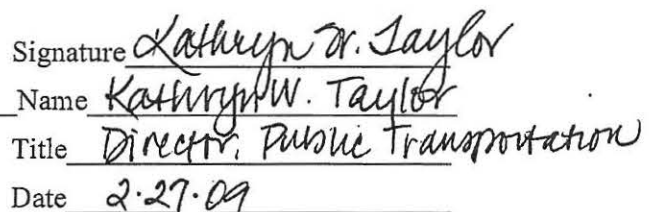 Signature Kathryn W. Taylor
Name Kathryn W. Taylor
Title Director, Public Transportation
Date 2.27.09